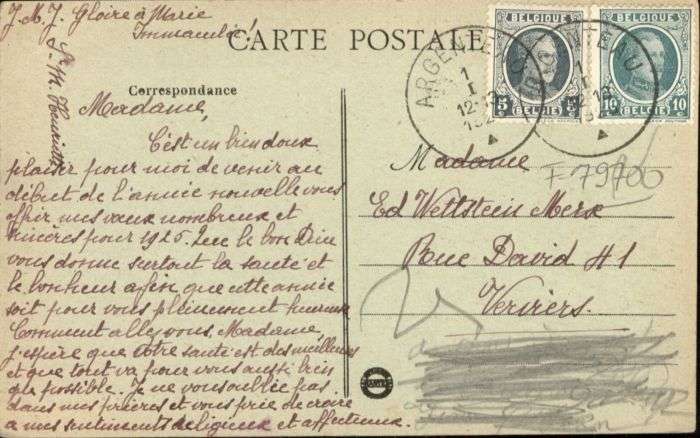 J. M. J. Gloire à Marie
Immaculée!
Sr. M. Henriette
CARTE POSTALE
Correspondance
Madame,
C'est un bien doux
plaisir pour moi de venir au
début de l'année nouvelle vous
offrir mes vœux nombreux et
sincères pour 1925. Que le bon Dieu
vous donne surtout la santé et
le bonheur afin que cette année
soit pour vous pleinement heureuse
Comment allez vous, Madame,
j'espère que votre santé est des meilleures
et que tout va pour vous aussi bien
que possible. Je ne vous oublie pas
dans mes prières et vous prie de croire
à mes sentiments religieux et affectueux.
BELGIQUE
5 5
BELGIË
BELGIQUE
10 10
BELGIË
ARGENTEAU
1
I
12-13
ARGENTEAU
1
I
Madame
F 79700
Ed Wettstein Merx
Rue David #1
Verviers.